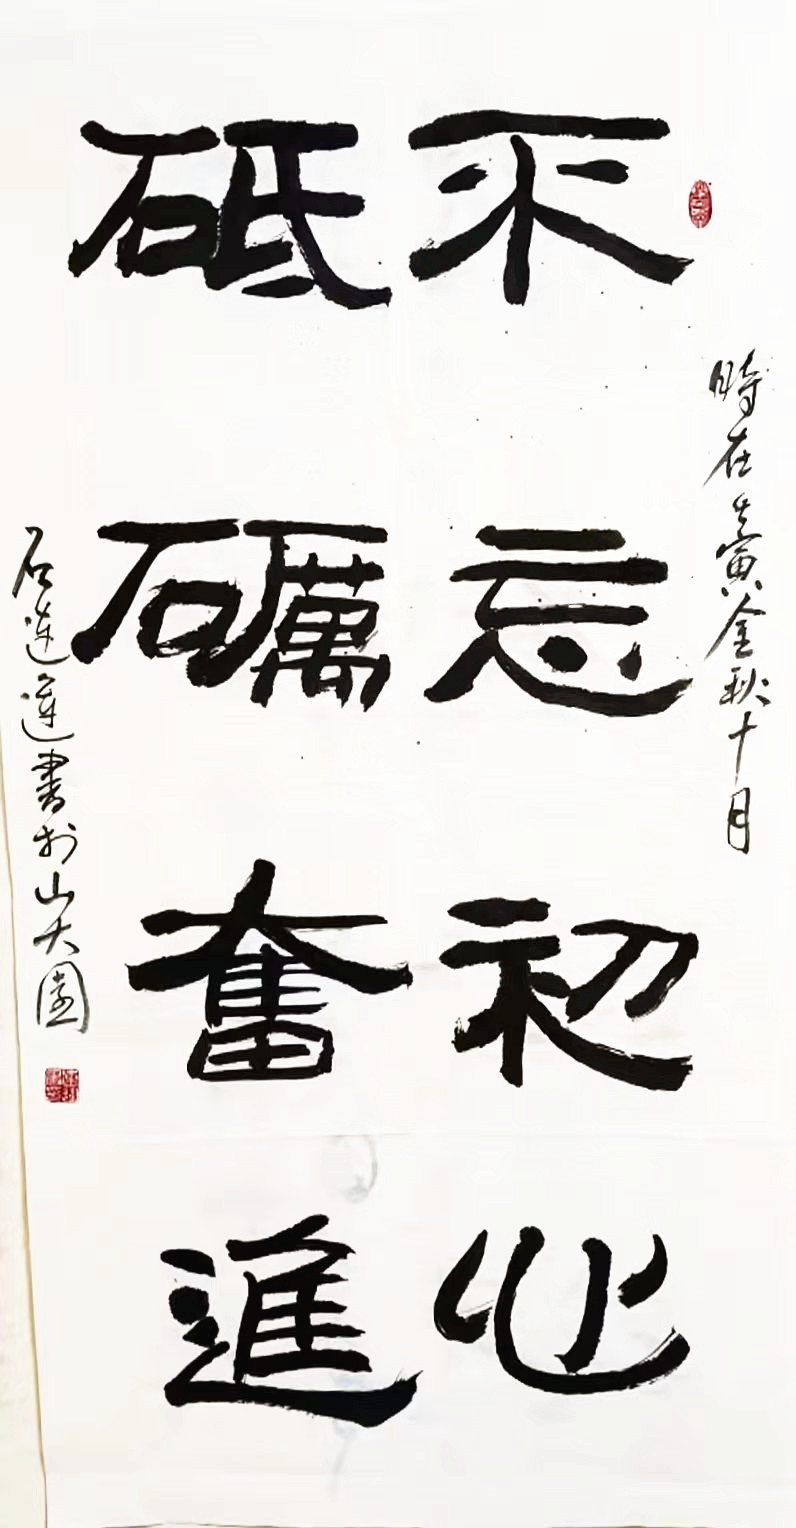 時在壬寅金秋十月
不忘初心
砥礪奮進
石蓮蓮書於山大園